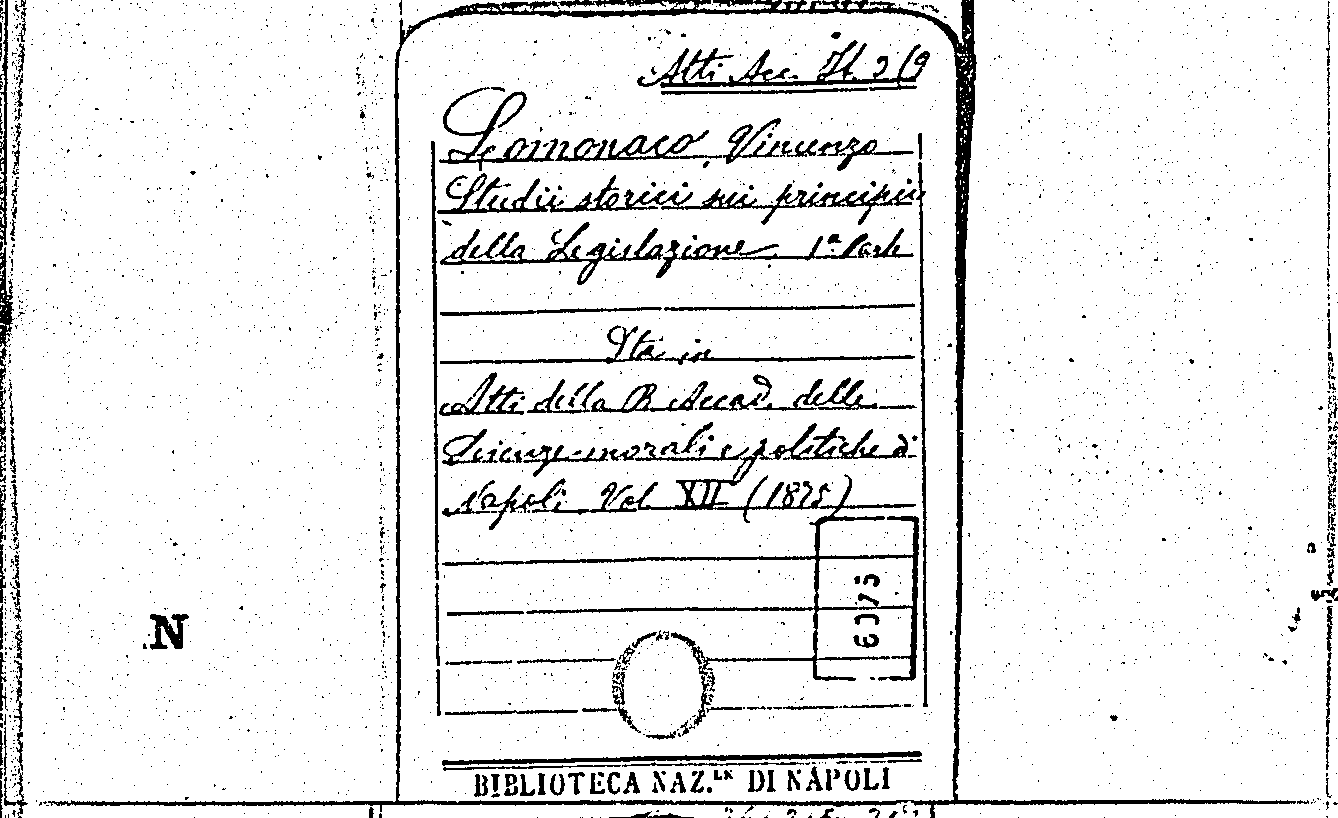 Atti Acc. It 2/9
Lomonaco, Vincenzo
Studii storici sui principii
della Legislazione. 1ª Parte
Sta in
Atti della R Accad. delle
Scienze morali e politiche di
Napoli. Vol. XII (1875)
6075
N
BIBLIOTECA NAZ.LE DI NAPOLI